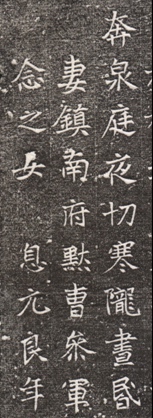 奔泉庭夜切寒隴晝昏
妻鎮南府默曹叅軍
念之女　息元良年